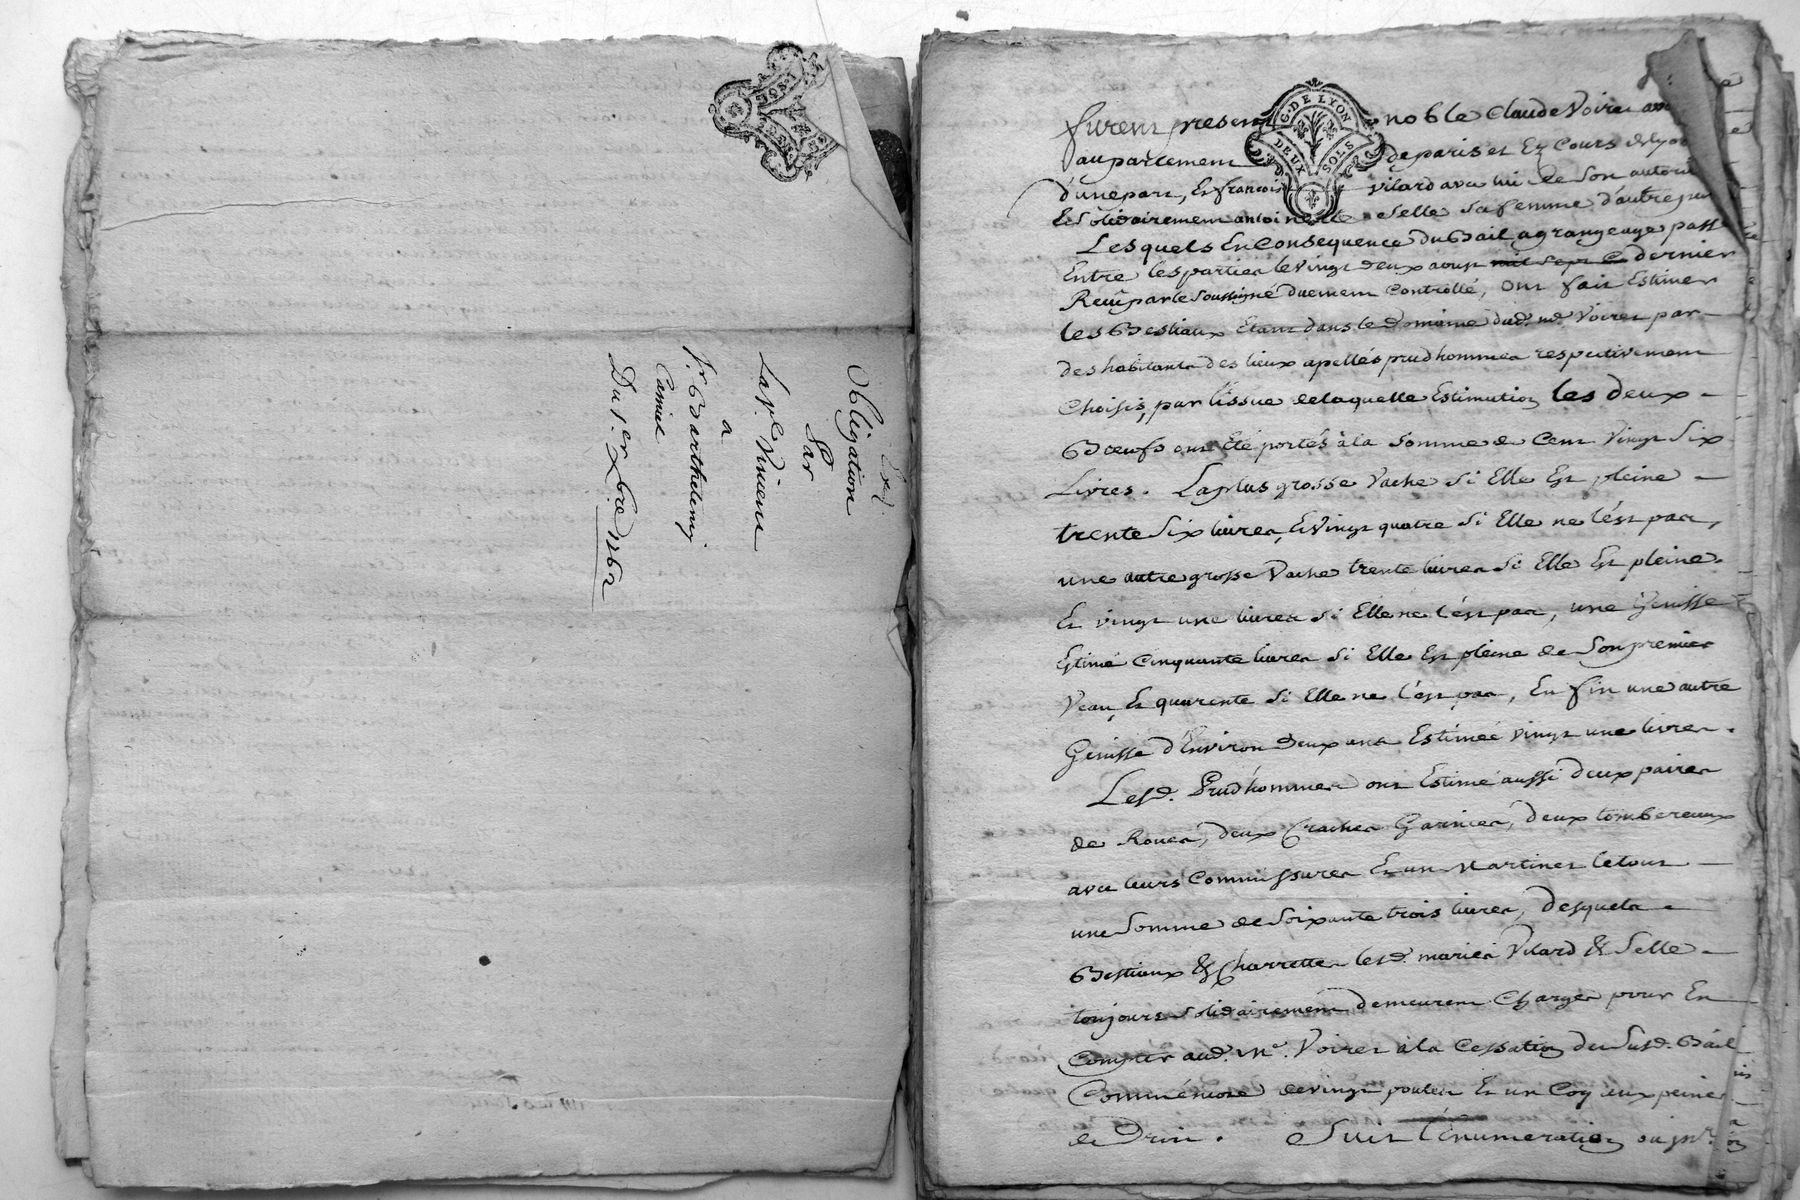 Exp.
Obligation
Par
La ve. Vincent
a
Sr. Barthelemy
Camier
Du 1er. Xbre 1762
G. DE LYON
DEUX SOLS
furent presens noble Claude Voiret
au parlement de paris et Ez Cours de lyon
d'une part, Et françois Vilard avec lui de son autorité
Et solidairement antoinette Selle sa femme d'autre part
Lesquels En Consequence du Bail a grangeage passé
Entre les parties le vingt deux aoust mil sept C dernier
Reçû par le soussigné duement Controllé, ont fait Estimer
les Bestiaux Etant dans le Domaine dud. me. Voiret par
des habitants des lieux apellés prudhommes respectivement
Choisis, par l'issue de laquelle Estimation les deux
Bœufs ont Eté portés à la somme de Cent vingt six
Livres. La plus grosse Vache si Elle Est pleine
trente six livres, Et vingt quatre si Elle ne l'ést pas,
une autre grosse Vache trente livres si Elle Est pleine.
Et vingt une livres si Elle ne l'ést pas, une Genisse
Estimé Cinquante livres si Elle Est pleine de Son premier
Veau, Et quarente si Elle ne l'ést pas, En fin une autre
Genisse d'Environ deux ans Estimée vingt une livres.
Lesd. Prud'hommes ont Estimé aussi deux paires
de Roues, deux Garnies, deux tombereaux
avec leurs Commissures Et un Martinet le tout
une Somme de Soixante trois livres, desquels
Bestiaux & Charrettes lesd. mariés Vilard & Selle
toujours solidairement demeurent Chargés pour En
Compter aud. Me. Voiret à la Cessation du Susd. Bail
Comme Encore de vingt poules Et un Coq deux peines
de Suit l'énumeration